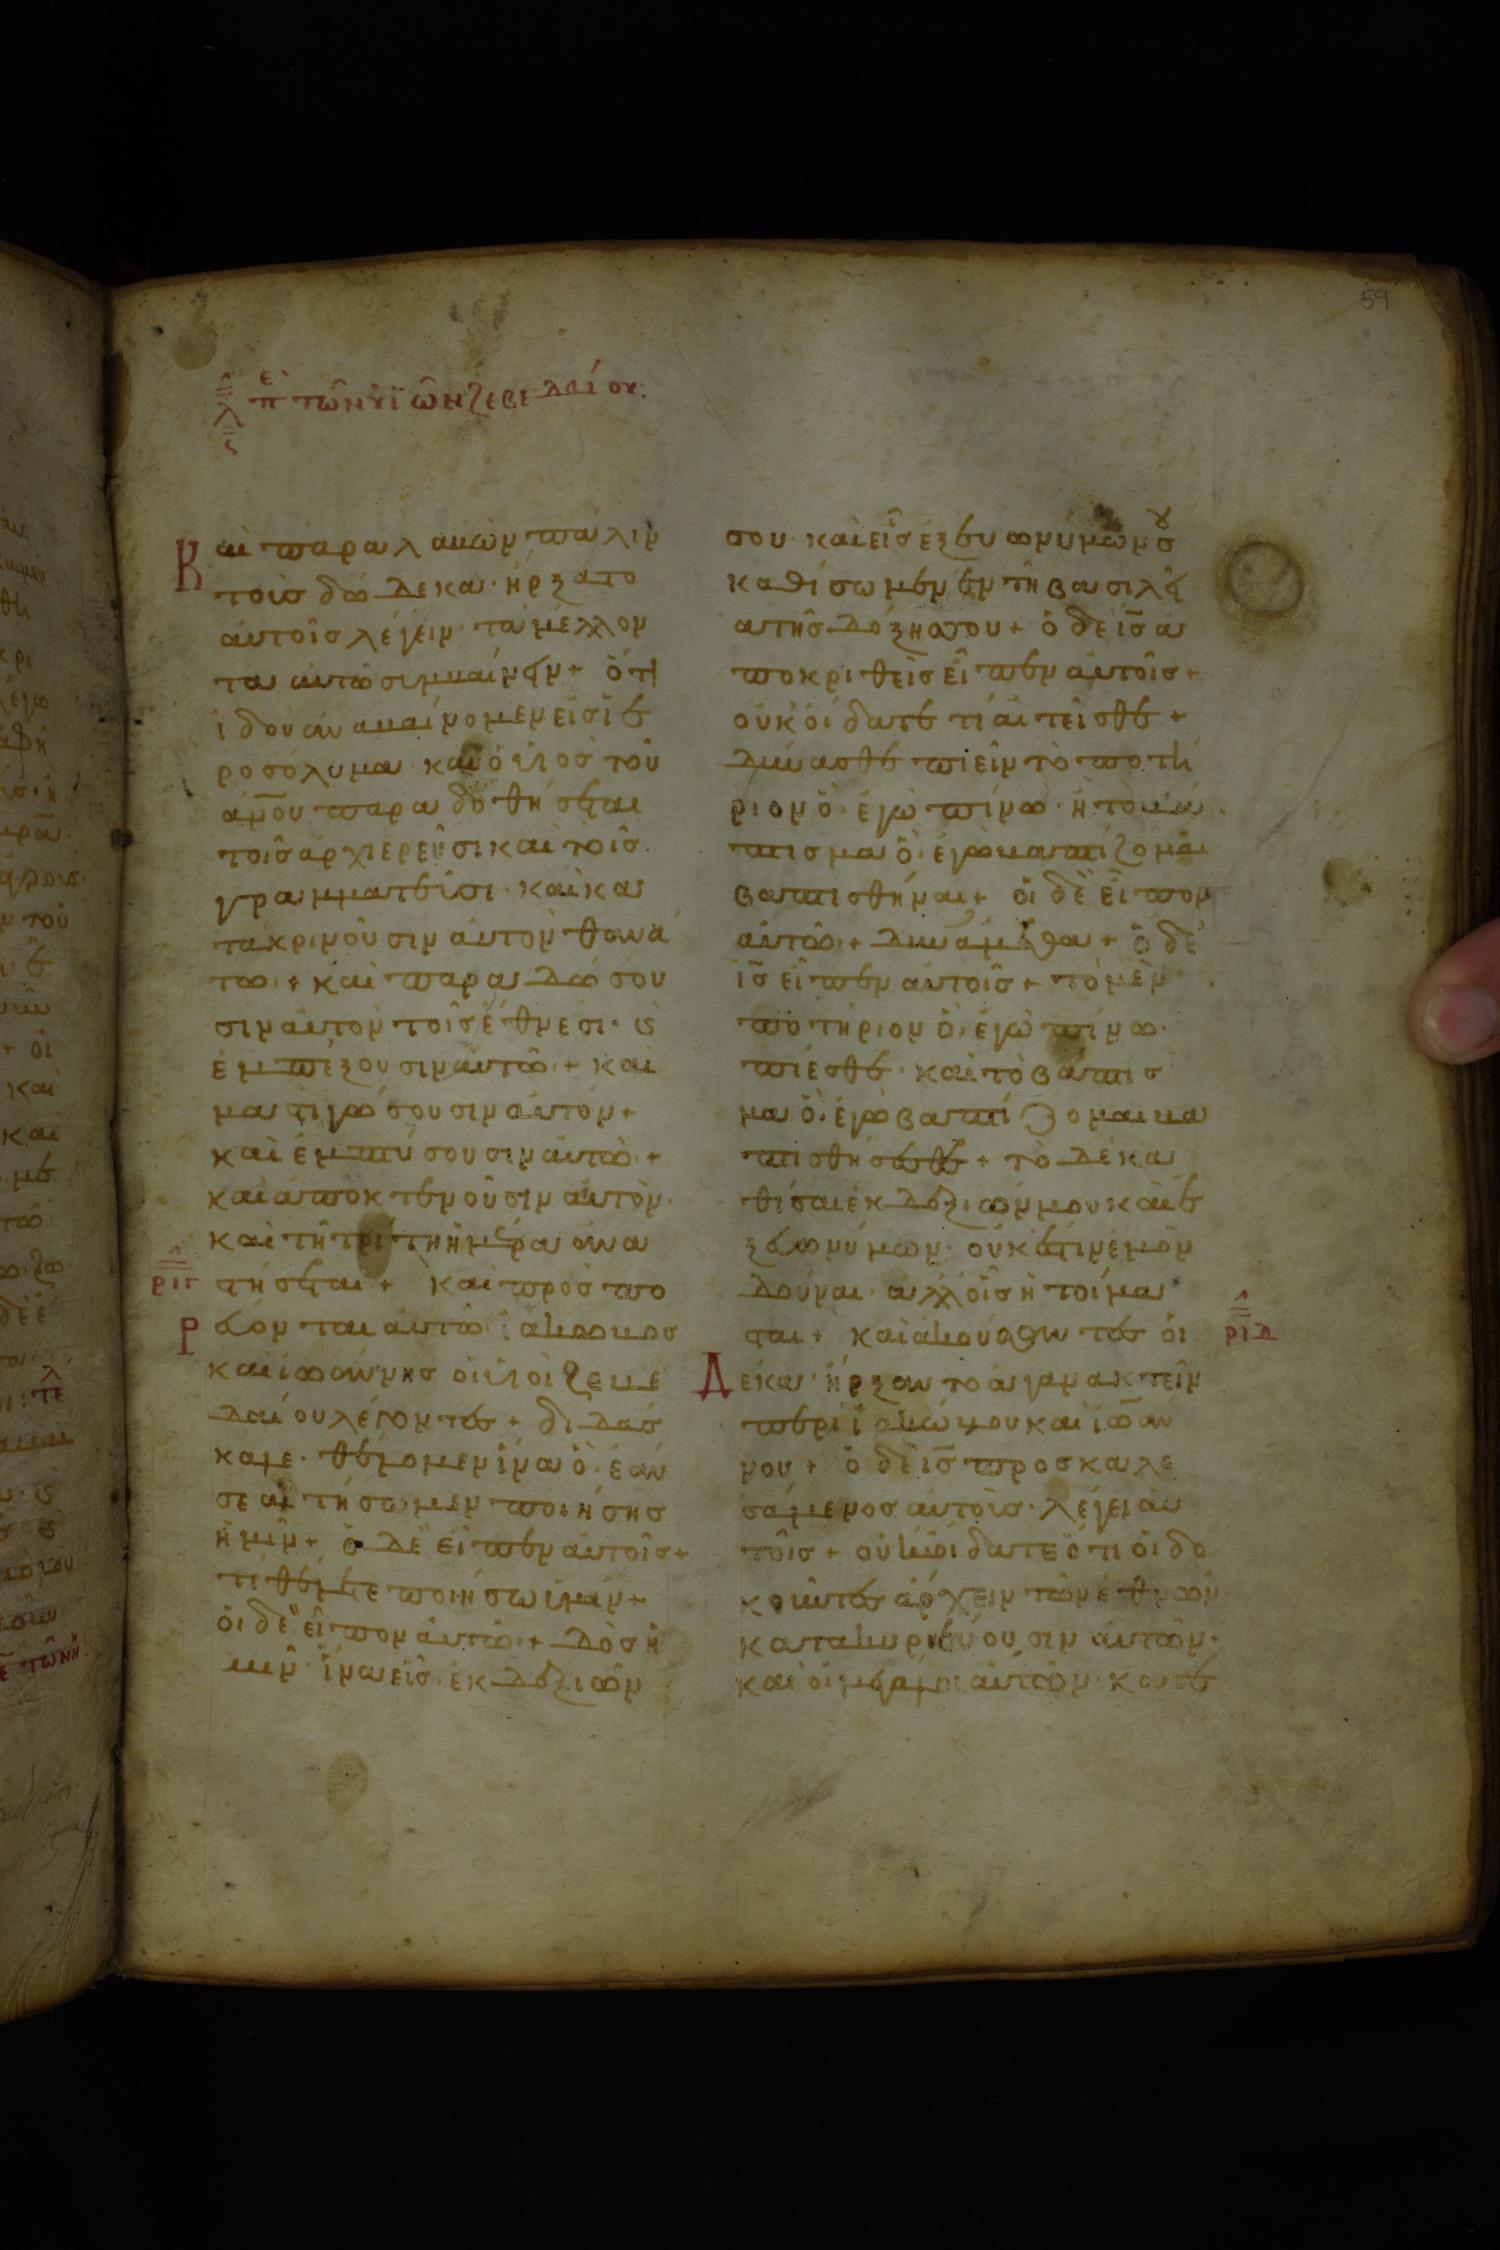 59
λϛ πὲ τῶν ὑϊῶν ζεβεδαίου:
Και παραλαβὼν παλιν
τοὺσ δώδεκα· ἤρξατο
αὐτοῖσ λέγειν· τὰ μέλλον
τα αυτῶ συμβαίνειν + ὅτι
ἰδοὺ ἀναβαίνομεν εἰσ ϊε
ροσόλυμα· καὶ ὁ ὑϊὸσ τοῦ
ἀν̅ου παραδοθήσεται
τοῖσ ἀρχιερεῦσι καὶ τοῖσ
γραμματεῦσι· καὶ κα
τακρινοῦσιν αὐτὸν θανά
τω· + καὶ παραδώσου
σιν αὐτὸν τοῖσ ἔθνεσι· ϗ
ἐμπέξουσιν αὐτῶ· + καὶ
μαστιγώσουσιν αὐτόν +
καὶ ἐμπτύσουσιν αὐτῶ· +
καὶ ἀποκτενοῦσιν αὐτόν·
καὶ τῆ τρίτη ἡμέρα ἀνα
ριγ στήσεται + καὶ προσπο
Ρεύονται αὐτῶ ϊάκωβοσ
καὶ ἰωάννησ οἱ ὑϊοὶ ζεβε
δαίου λέγοντεσ + διδάσ
καλε· θέλομεν ἵνα ὃ· ἐὰν
σε αἰτήσωμεν ποιήσησ
ἡμῖν + ὁ δὲ εἶπεν αὐτοῖσ +
τί θέλετε ποιήσω ὑμῖν +
οἱ δὲ εἶπον αὐτῶ· + δὸσ ἡ
μῖν· ἵνα εἷσ ἐκ δεξιῶν
σου· καὶ εἷσ ἐξ ευωνύμων σου
καθίσωμεν ἐν τῆ βασιλεί
α τῆσ δόξησ σου + ὁ δὲ ισ̅ α
ποκριθεὶσ εἶπεν αὐτοῖσ +
οὐκ οἴδατε τί αἰτεῖσθε +
δύνασθε πιεῖν τὸ ποτή
ριον ὃ· ἐγὼ πίνω· ἢ τὸ βά
πτισμα ὃ· ἐγὼ βαπτίζομαι
βαπτισθῆναι + οἱ δὲ εἶπον
αὐτῶ· + δυνάμεθα + ὁ δὲ
ισ̅ εἶπεν αὐτοῖσ + τὸ μὲν
ποτήριον ὃ· ἐγὼ πίνω·
πίεσθε· καὶ τὸ βάπτισ
μα ὃ· ἐγὼ βαπτίζομαι βα
πτισθήσεσθε + τὸ δὲ κα
θίσαι ἐκ δεξιῶν μου καὶ ἐ
ξ εὐωνύμων· οὐκ ἔστιν ἐμὸν
δοῦναι· ἀλλ' οἷσ ἡτοίμα
σται + καὶ ἀκούσαντεσ οἱ ριδ
Δέκα· ἤρξαντο ἀγανακτεῖν
περὶ ϊακώβου καὶ ϊωάν
νου + ὁ δὲ ισ̅ προσκαλε
σάμενοσ αὐτοὺσ· λέγει αὐ
τοῖσ + οὐκ οἴδατε ὅτι οἱ δο
κοῦντεσ ἄρχειν τῶν ἐθνῶν
κατακυριεύουσιν αὐτῶν·
καὶ οἱ μεγάλοι αὐτῶν κατε